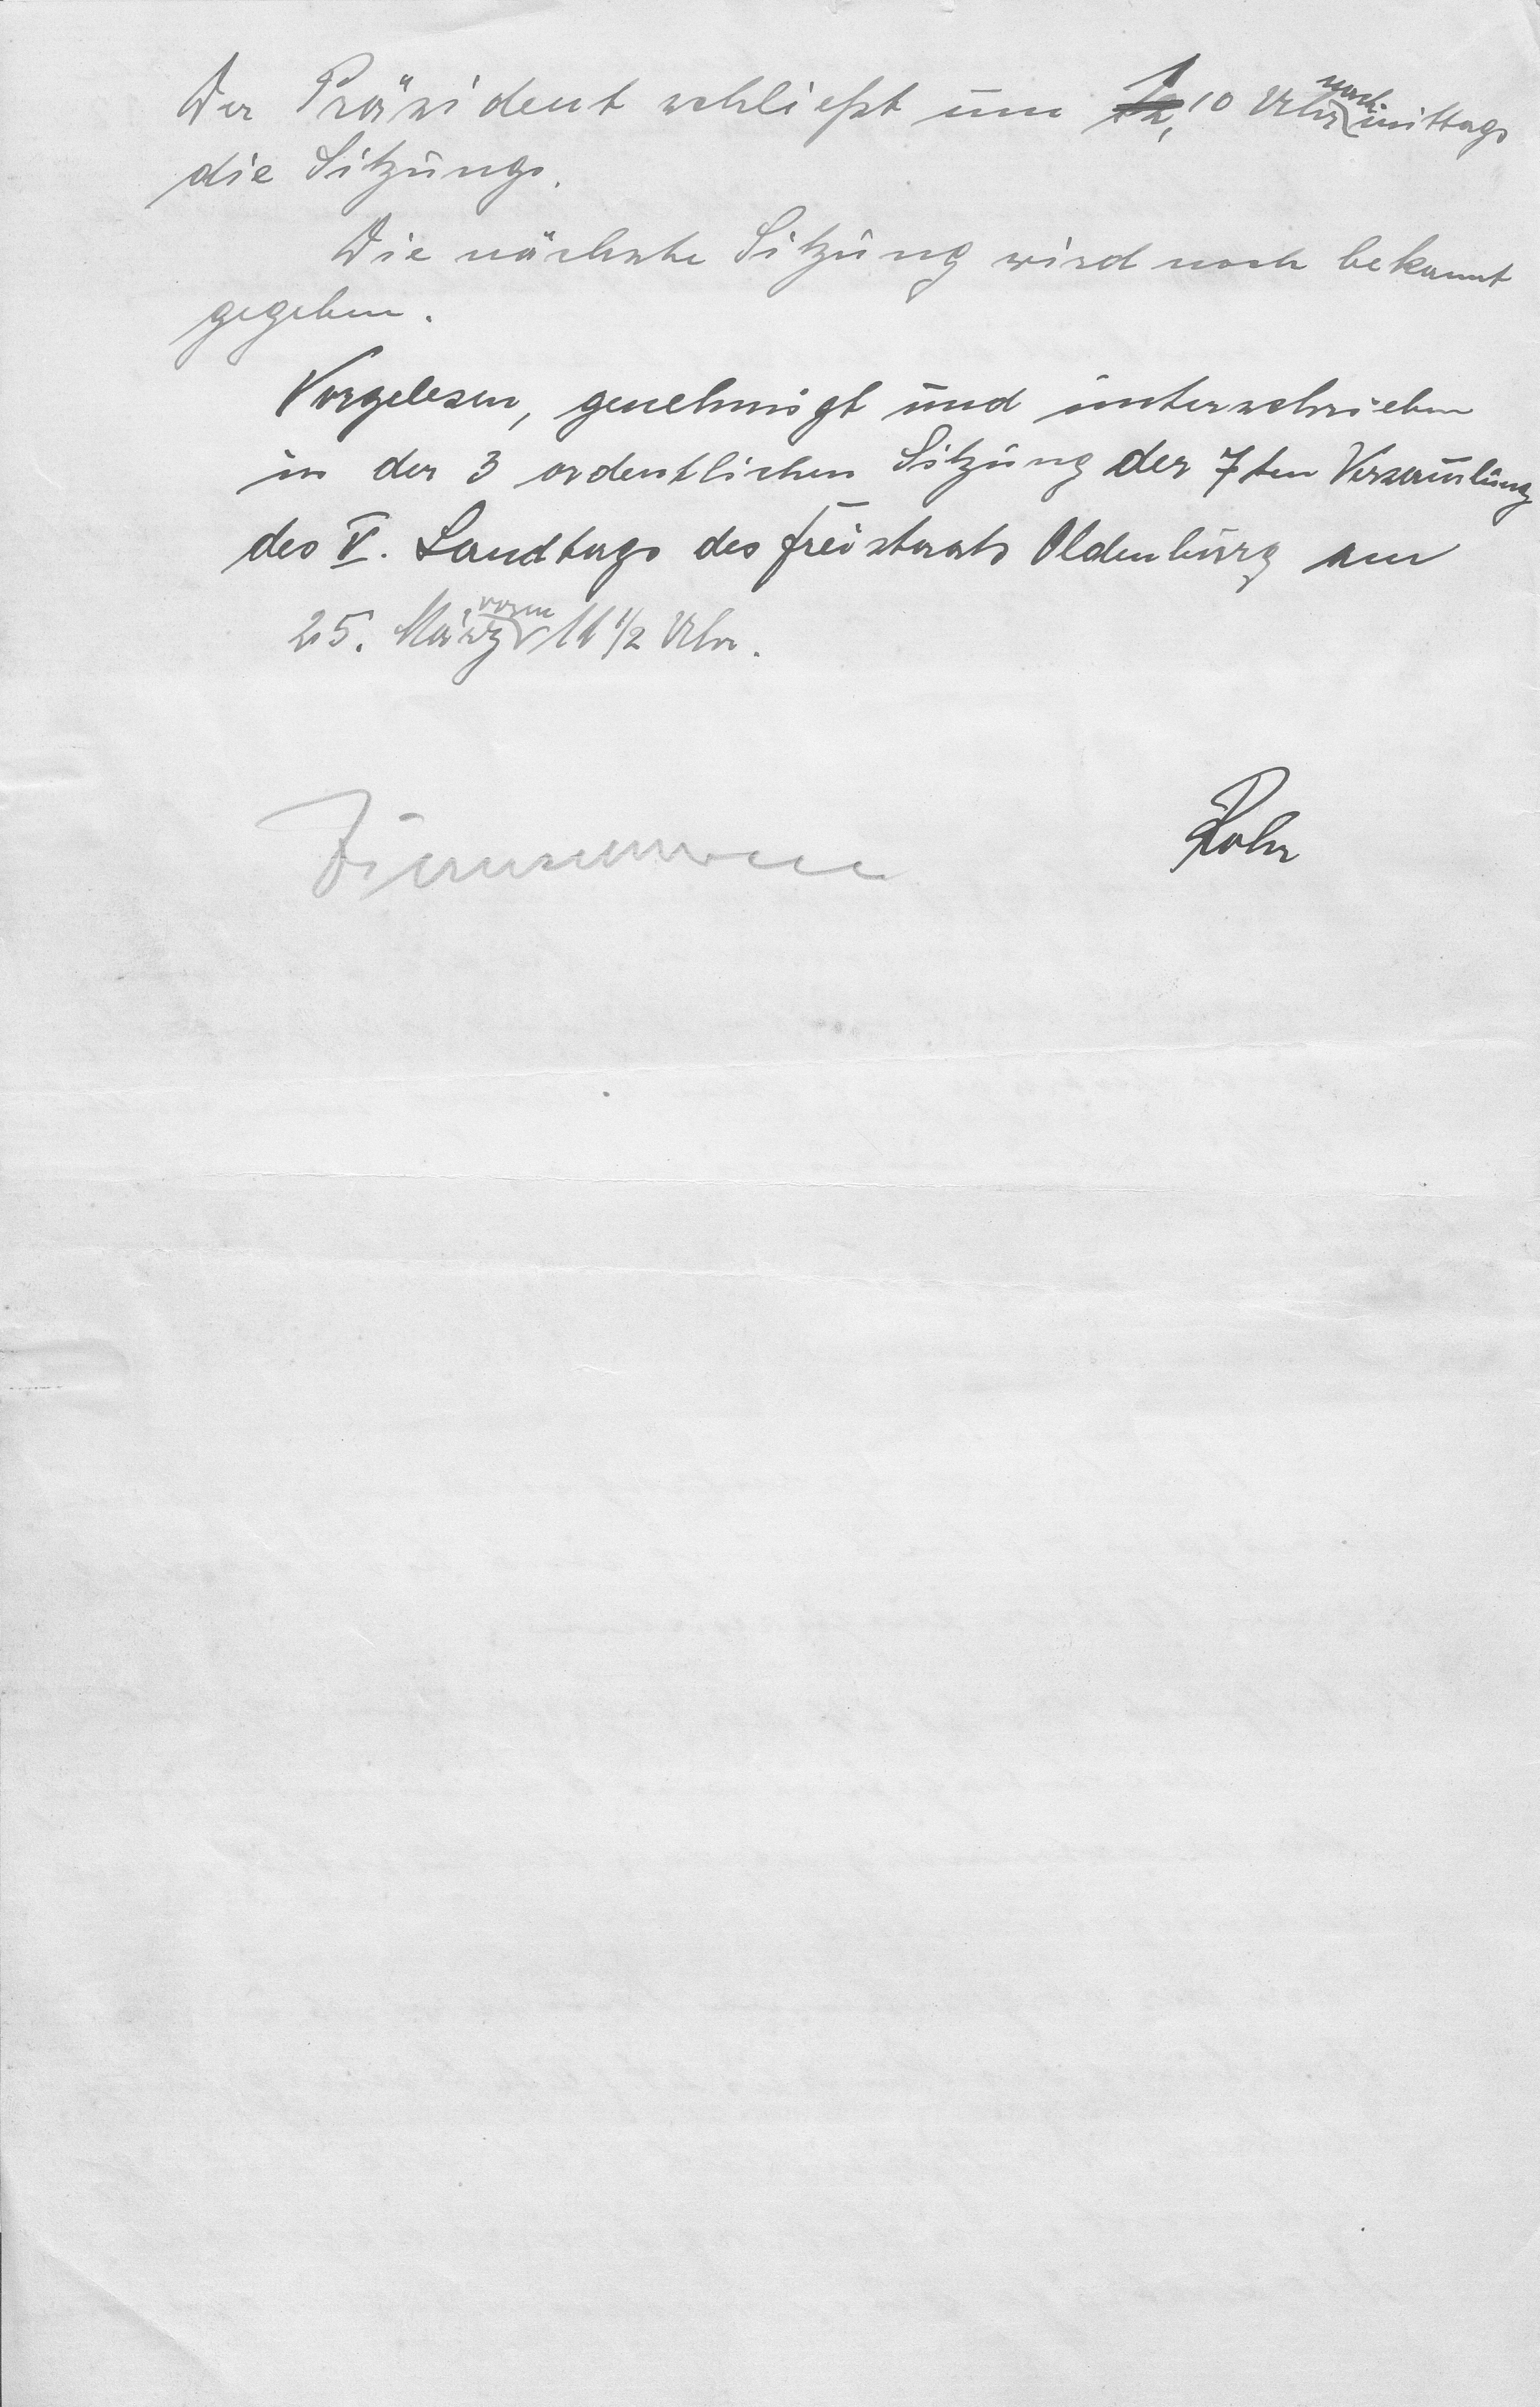 Der Präsident schließt um 1,10 Uhr nachmittags
die Sitzung.
Die nächste Sitzung wird noch bekannt
gegeben.
Vorgelesen, genehmigt und unterschrieben
in der 3 ordentlichen Sitzung der 7ten Versam̅lung
des V. Landtags des Freistaats Oldenburg am
25. März vorm 11 1/2 Uhr.
Zimmermann Rohr